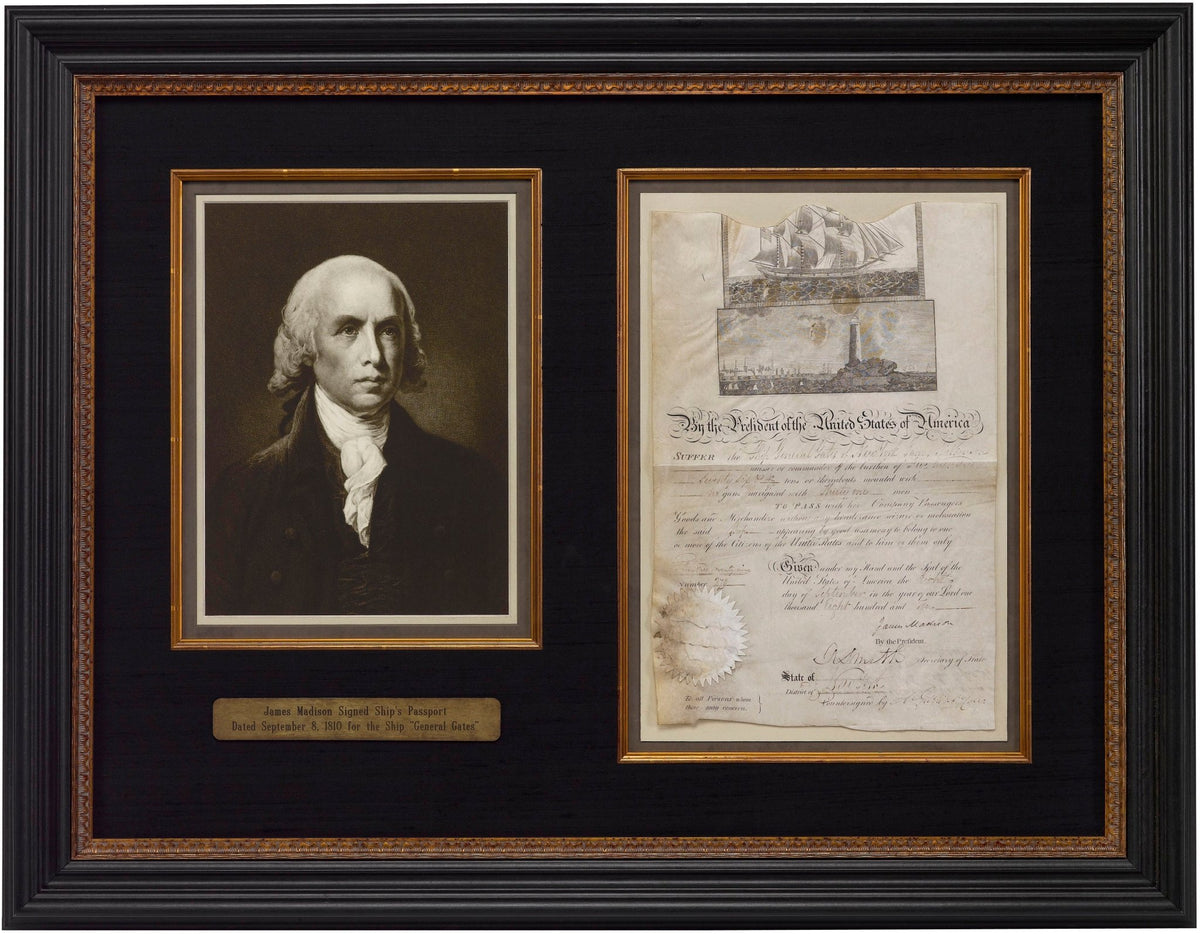 James Madison Signed Ship's Passport
Dated September 8, 1810 for the Ship "General Gates"
By the President of the United States of America
SUFFER the Ship General Gates of New York
master or commander of the burthen of Two hundred
Seventy Six tons or thereabouts mounted with
no guns navigated with men
TO PASS with her Company Passengers
Goods and Merchandize without any hinderance seizure or molestation
the said Ship appearing by good testimony to belong to one
or more of the Citizens of the United States and to him or them only
Given under my Hand and the Seal of the
Number
United States of America the
day of September in the year of our Lord one
thousand Eight hundred and Ten
James Madison
By the President.
R Smith Secretary of State
State of New York
District of
Countersigned by
To all Persons whom
these may concern.